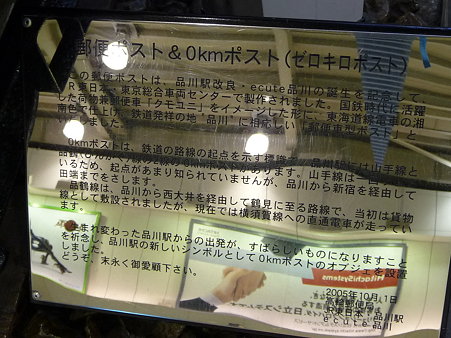 郵便ポスト＆0kmポスト(ゼロキロポスト)
この郵便ポストは、品川駅改良・ecute品川の誕生を記念して
JR東日本・東京総合車両センターで製作されました。国鉄時代に活躍
した荷物兼郵便車「クモユニ」をイメージした形に、東海道線電車の湘
南色で仕上げ、鉄道発祥の地"品川"に相応しい「郵便車型ポスト」と
しました。
0kmポストは、鉄道の路線の起点を示す標識で、品川駅には山手線と
いるため、起点があまり知られていませんが、品川から新宿を経由して
田端までをさします。
品鶴線は、品川から西大井を経由して鶴見に至る路線で、当初は貨物
線として敷設されましたが、現在では横須賀線への直通電車が走ってい
ます。
生まれ変わった品川駅からの出発が、すばらしいものになりますこと
を祈念し、品川駅の新しいシンボルとして0kmポストのオブジェを設置
しました。
どうぞ、末永く御愛顧下さい。
2005年10月1日
高輪郵便局
JR東日本 品川駅
ecute品川
HitachiSystems